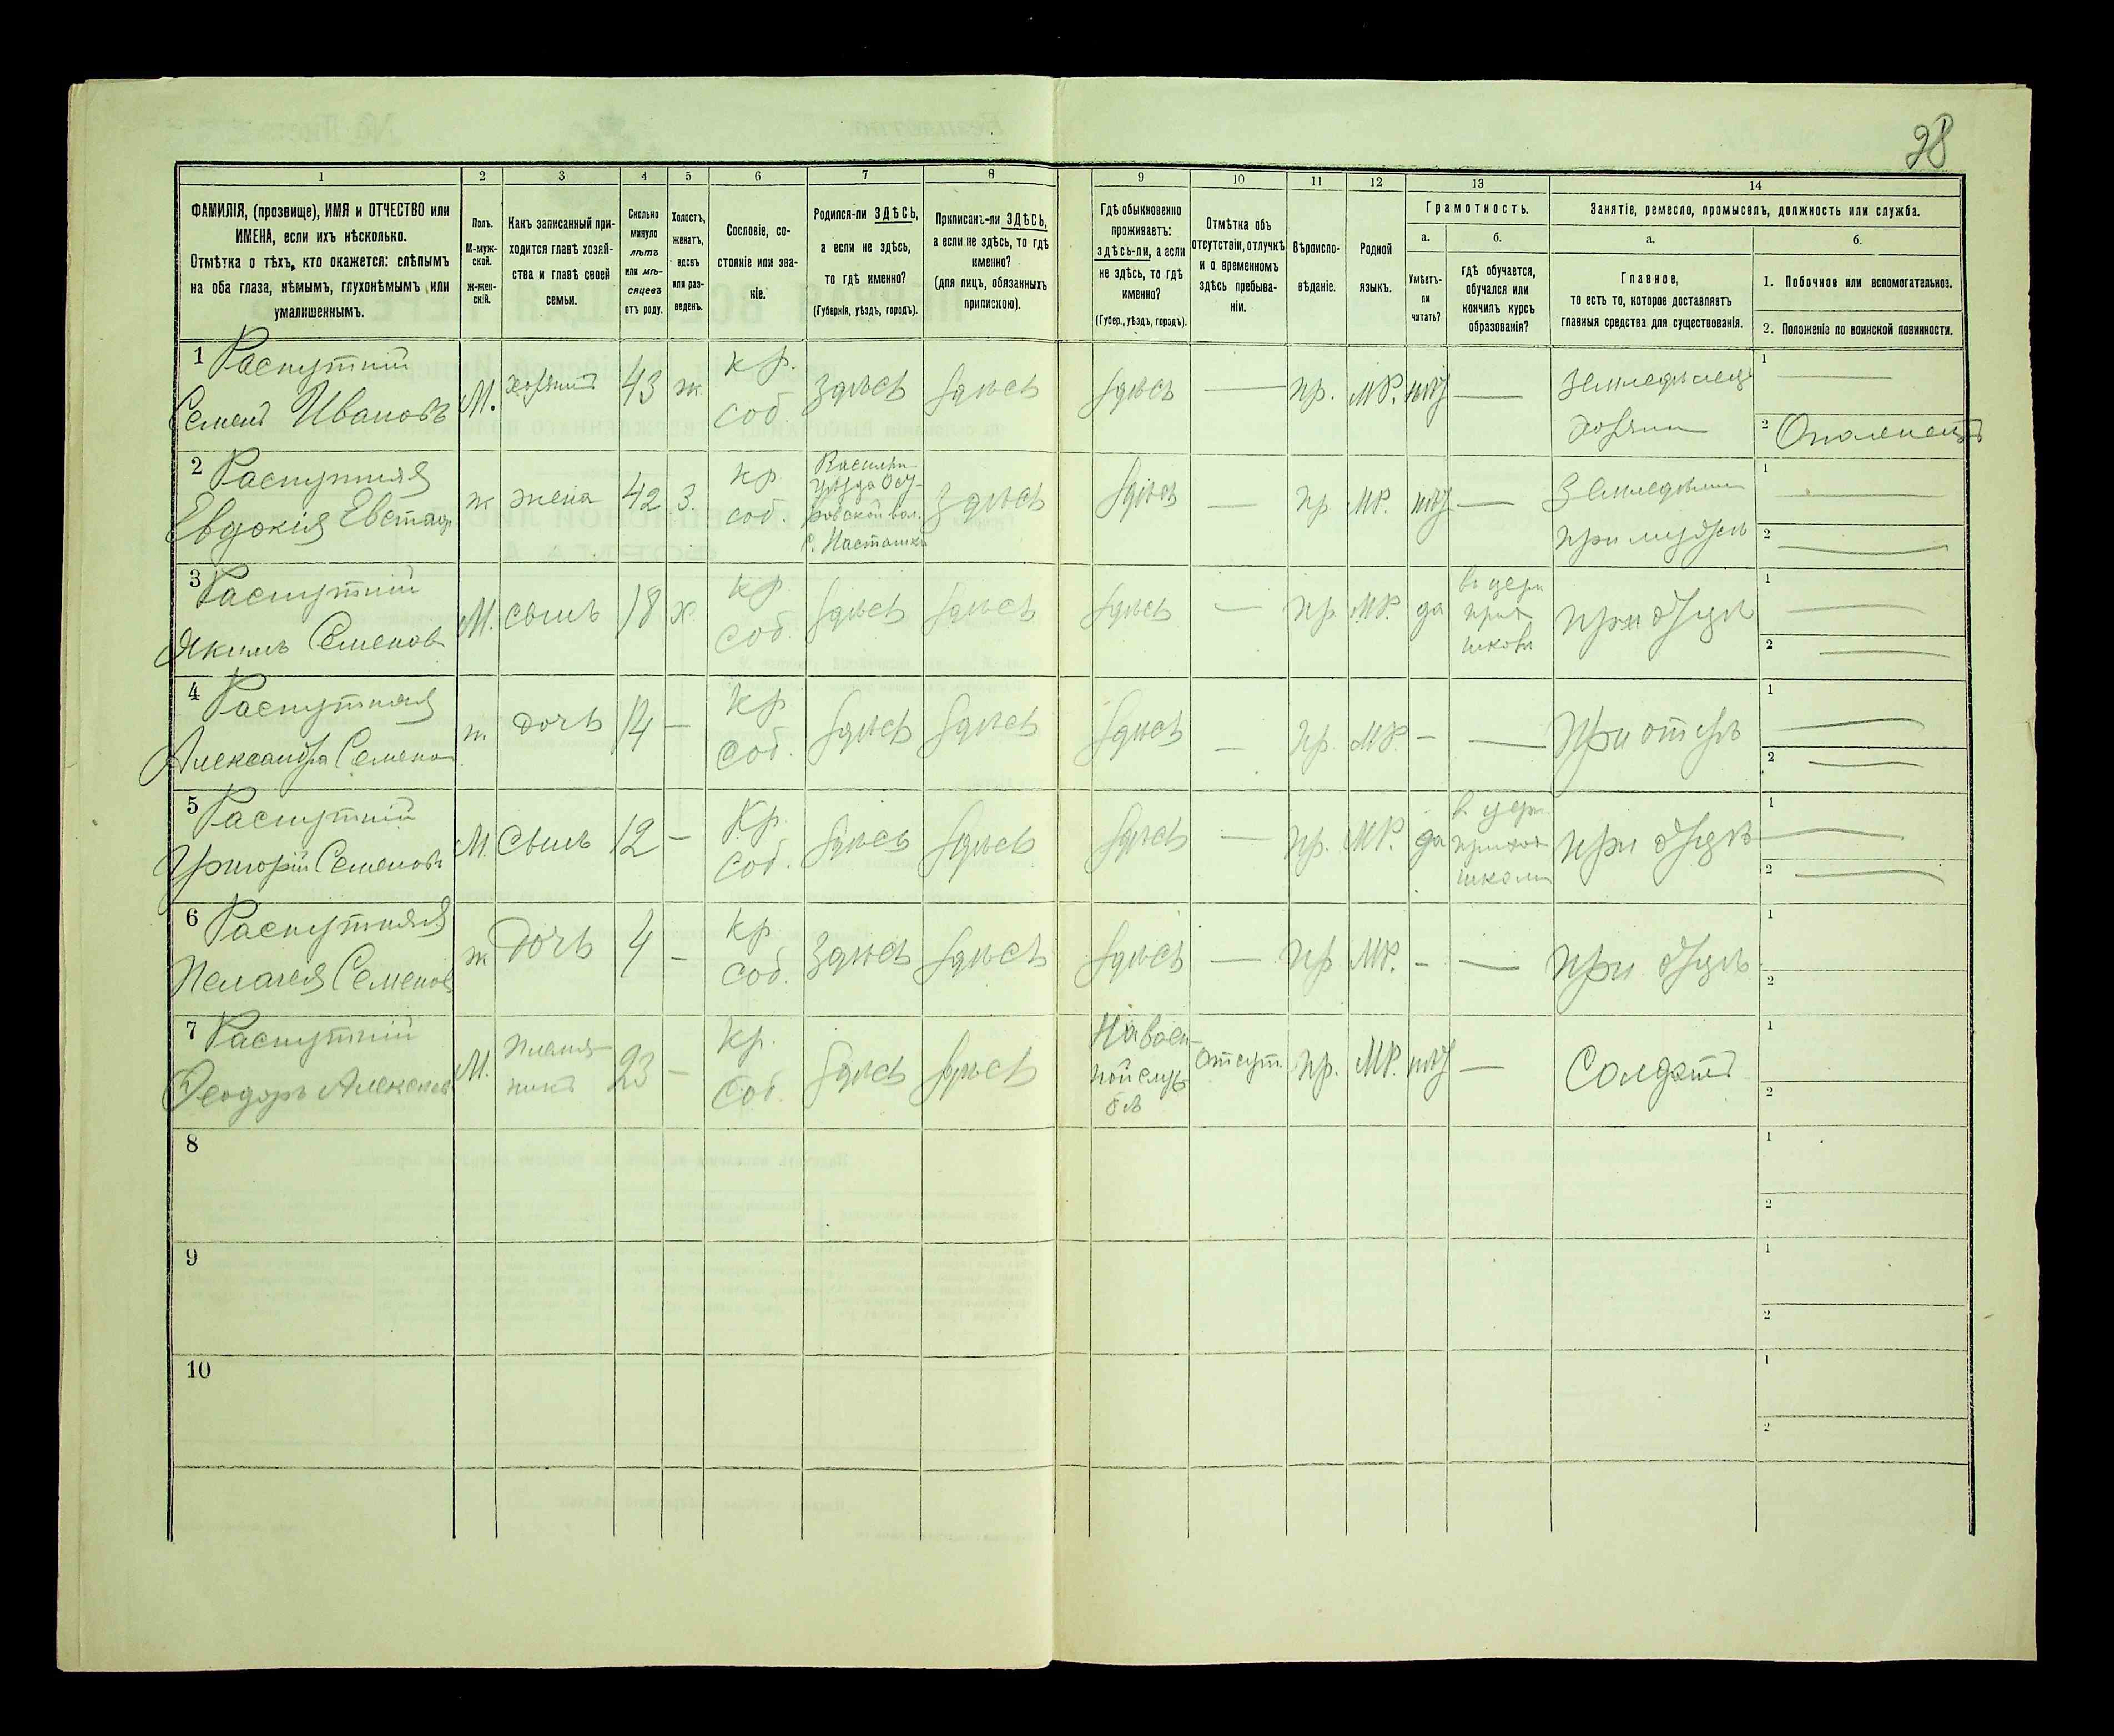 28
1 2 3 4 5 6 7 8 9 10 11 12 13 14
ФАМИЛІЯ, (прозвище), ИМЯ и ОТЧЕСТВО или
ИМЕНА, если ихъ нѣсколько.
Отмѣтка о тѣхъ, кто окажется: слѣпымъ
на оба глаза, нѣмымъ, глухонѣмымъ или
умалишеннымъ.
Полъ.
М-муж-
ской.
ж-жен-
скій.
Какъ записанный при-
ходится главѣ хозяй-
ства и главѣ своей
семьи.
Сколько
минуло
лѣтъ
или мѣ-
сяцевъ
отъ роду.
Холостъ,
женатъ,
вдовъ
или раз-
веденъ.
Сословіе, со-
стояніе или зва-
ніе.
Родился-ли ЗДѢСЬ,
а если не здѣсь,
то гдѣ именно?
(Губернія, уѣздъ, городъ).
Приписанъ-ли ЗДѢСЬ,
а если не здѣсь, то гдѣ
именно?
(для лицъ, обязанныхъ
припискою).
Гдѣ обыкновенно
проживаетъ:
здѣсь-ли, а если
не здѣсь, то гдѣ
именно?
(Губер., уѣздъ, городъ).
Отмѣтка объ
отсутствіи, отлучкѣ
и о временномъ
здѣсь пребыва-
ніи.
Вѣроиспо-
вѣданіе.
Родной
языкъ.
Грамотность.
а.
Умѣетъ-
ли
читать?
б.
гдѣ обучается,
обучался или
кончилъ курсъ
образованія?
Занятіе, ремесло, промыселъ, должность или служба.
а.
Главное,
то есть то, которое доставляетъ
главныя средства для существованія.
б.
1. Побочное или вспомогательное.
2. Положеніе по воинской повинности.
1 Распутній
Семенъ Ивановъ
М. хозяинъ 43 ж
кр.
соб.
здѣсь здѣсь здѣсь — пр. МР. нѣт —
Земледѣлец
хозяин
1 —
2 Ополченецъ
2 Распутняя
Евдокія Евстаф
ж жена 42 3.
кр
соб.
Васильк
уѣзда
вол.
с. Насташка
здѣсь здѣсь — пр МР. нѣт —
при мужѣ
1 —
2 —
3 Распутній
Якимъ Семенов
М. сынъ 18 х
кр.
соб.
здѣсь здѣсь здѣсь — пр МР. да
в церк
прих
школѣ
при отцѣ
1 —
2 —
4 Распутняя
Александра Семено
ж. дочь 14 —
кр
соб.
здѣсь здѣсь здѣсь — пр. МР. — —
при отцѣ
1 —
2 —
5 Распутній
Григорій Семеновъ
М. сынъ 12 —
Кр.
соб.
здѣсь здѣсь здѣсь — пр. МР. да
в церк
приход
школи
при отцѣ
1 —
2 —
6 Распутняя
Пелагея Семенов
ж Дочь 4 —
кр
соб.
здѣсь здѣсь здѣсь — пр МР. — —
при отцѣ
1
2
7 Распутній
Феодоръ Алексѣев
М.
племян-
никъ
23 —
кр.
соб.
здѣсь здѣсь
На воен-
ной служ
бѣ
отсут. пр. МР. нѣт —
Солдатъ
1
2
8
1
2
9
1
2
10
1
2